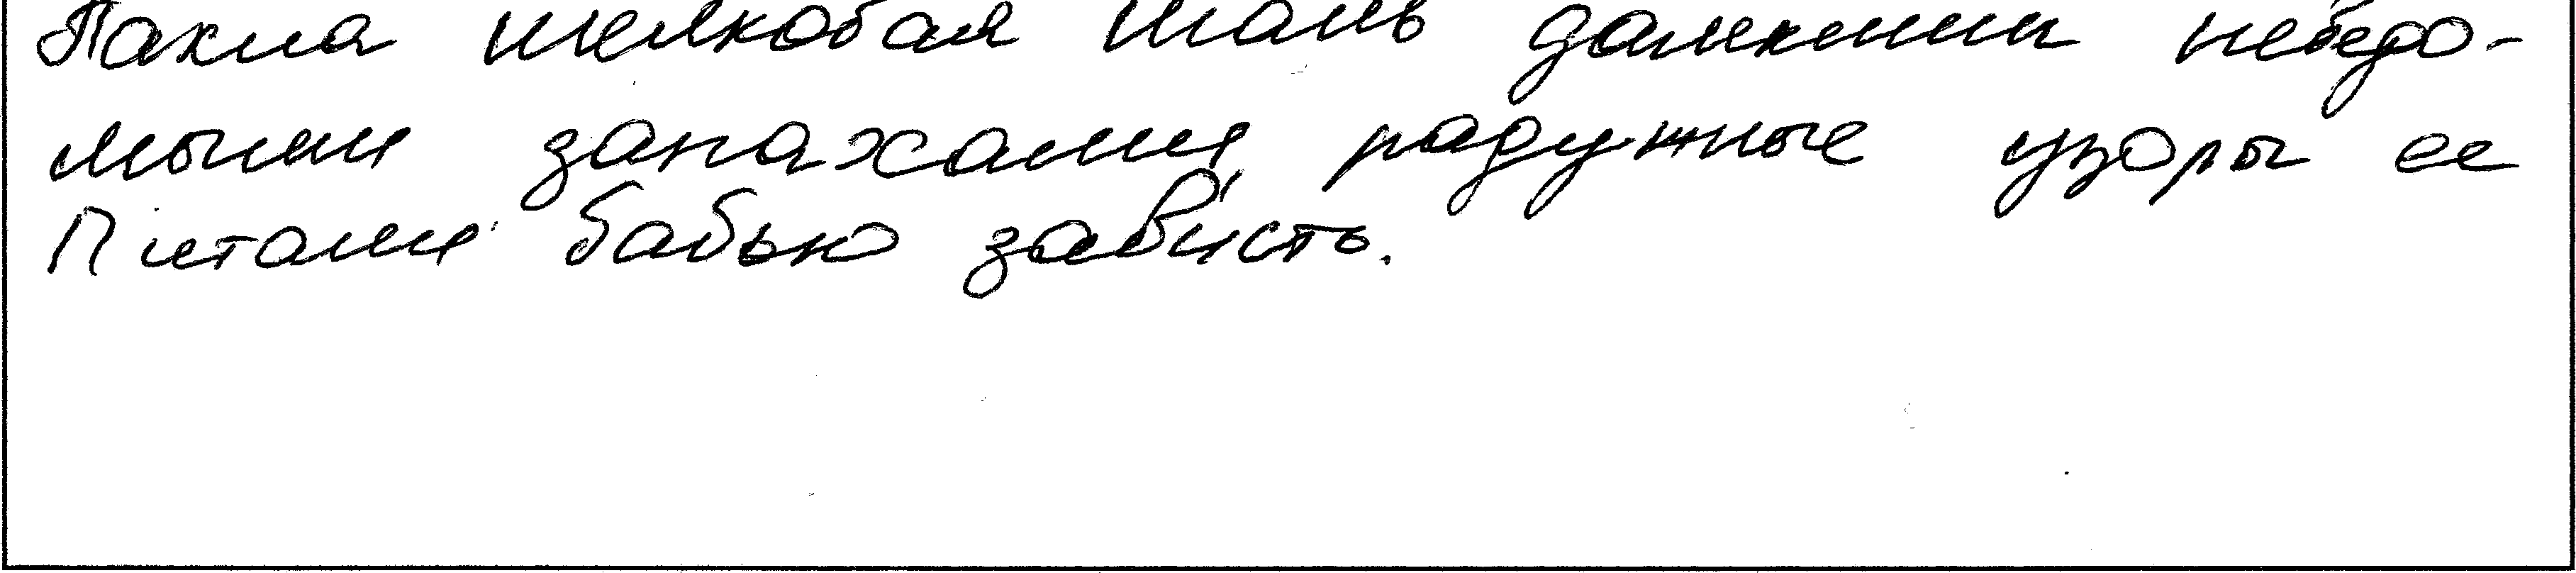 Пахла шелковая шаль далекими неведо-
мыми запахами, радужные узоры ее
питали бабью зависть.